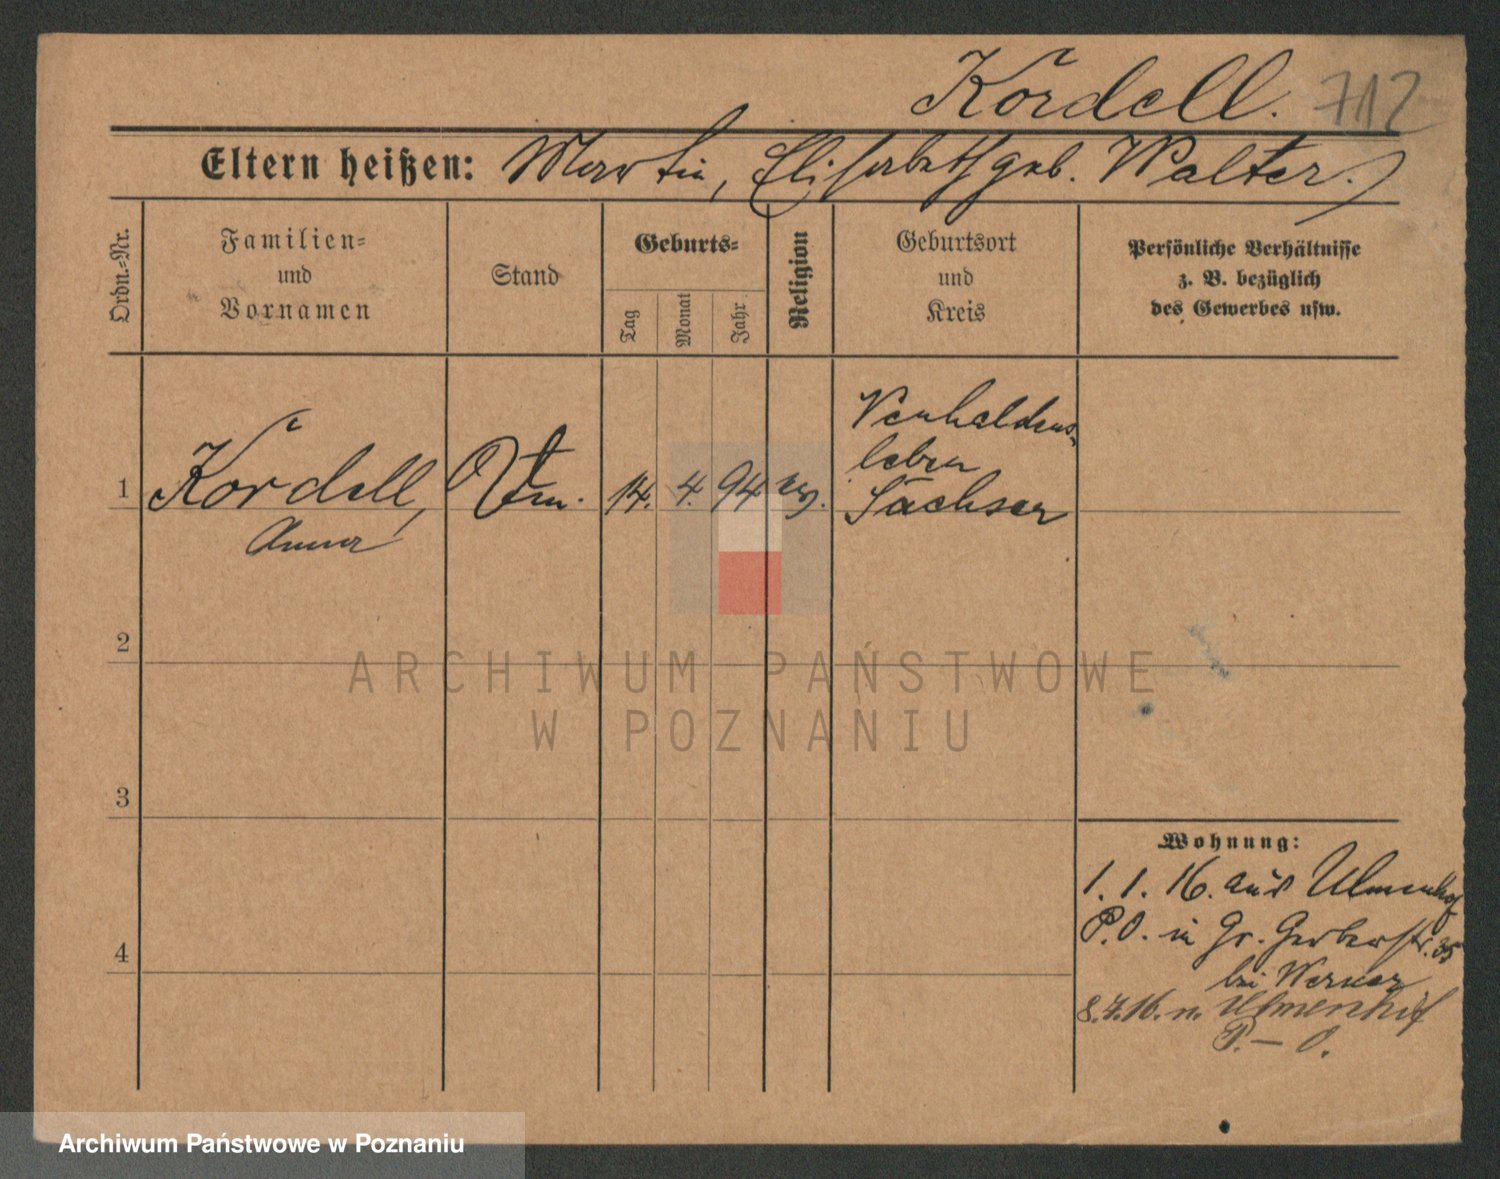 Kordell. 712
Eltern heißen: Martin, Elisabeth geb. Walter.
Ordn.-Nr.
Familien-
und
Vornamen
Stand
Geburts-
Tag
Monat
Jahr
Religion
Geburtsort
und
Kreis
Persönliche Verhältnisse
z. B. bezüglich
des Gewerbes usw.
1
Kordell,
Anna
14. 4. 94
ev.
Neuhaldens-
leben
Sachsen
2
3
4
Wohnung:
1. 1. 16. aus Ulmenhof
P. O. in Gr. Gerberstr. 35
bei Werner
8.7.16. n. Ulmenhof
P. – O.
ARCHIWUM PAŃSTWOWE
W POZNANIU
Archiwum Państwowe w Poznaniu